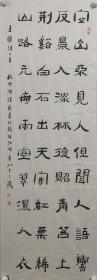 空山不見人但聞人語響
反景入深林復照青苔上
荊谿白石出天寒紅葉稀
山路元無雨空翠濕人衣
王維詩二首